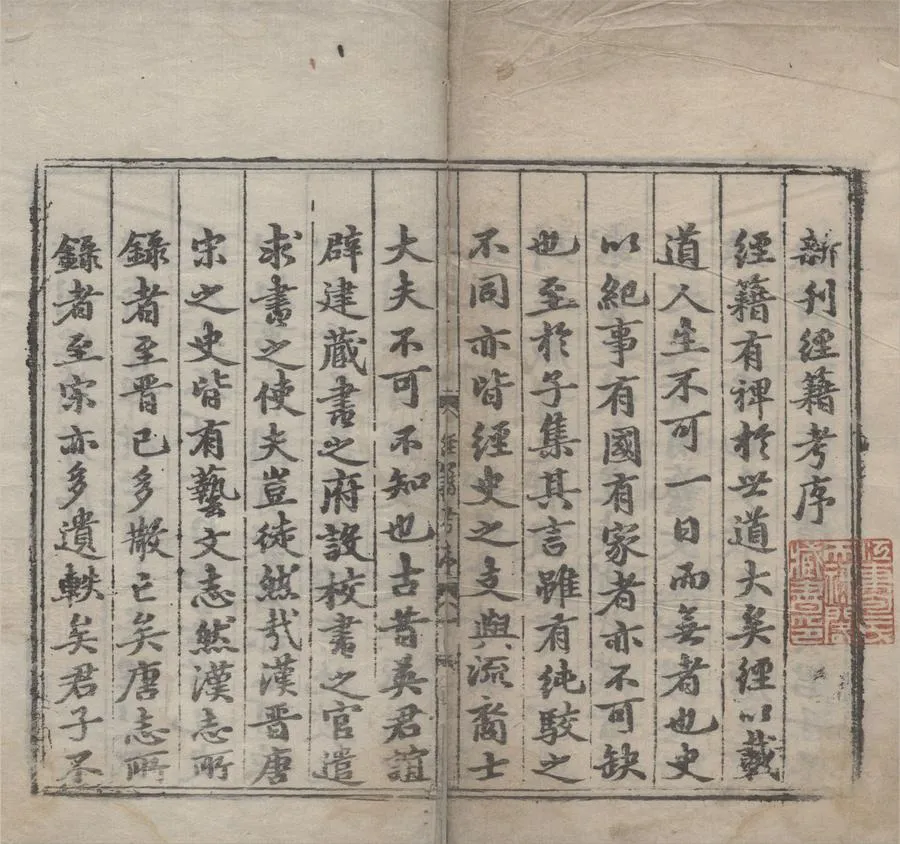 新刊經籍考序
經籍有裨於世道大矣經以載
道人生不可一日而無者也史
以紀事有國有家者亦不可缺
也至於子集其言雖有純駁之
不同亦皆經史之支與流裔士
經籍考序
大夫不可不知也古昔英君誼
辟建藏書之府設校書之官遣
求書之使夫豈徒然哉漢晉唐
宋之史皆有藝文志然漢志所
錄者至晉已多散亡矣唐志所
錄者至宋亦多遺軼矣君子不